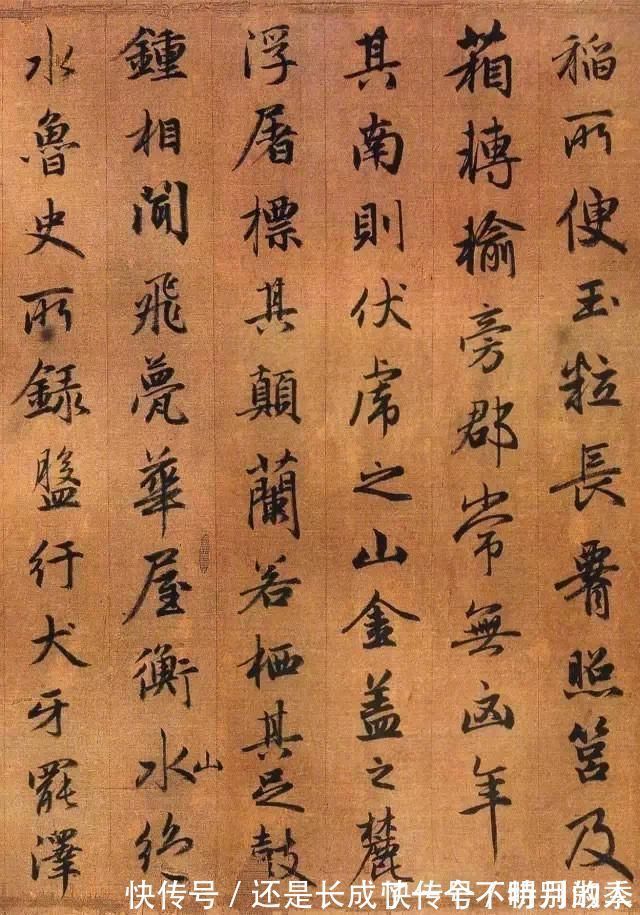 稲所便玉粒長腰照筥及
箱轉輸旁郡常無凶年
其南則伏虎之山金盖之麓
浮屠標其顛蘭若栖其足鼓
鍾相聞飛甍華屋衡水山絶
水魯史所録盤紆犬牙罷澤
快传号 / 还是长成快传号